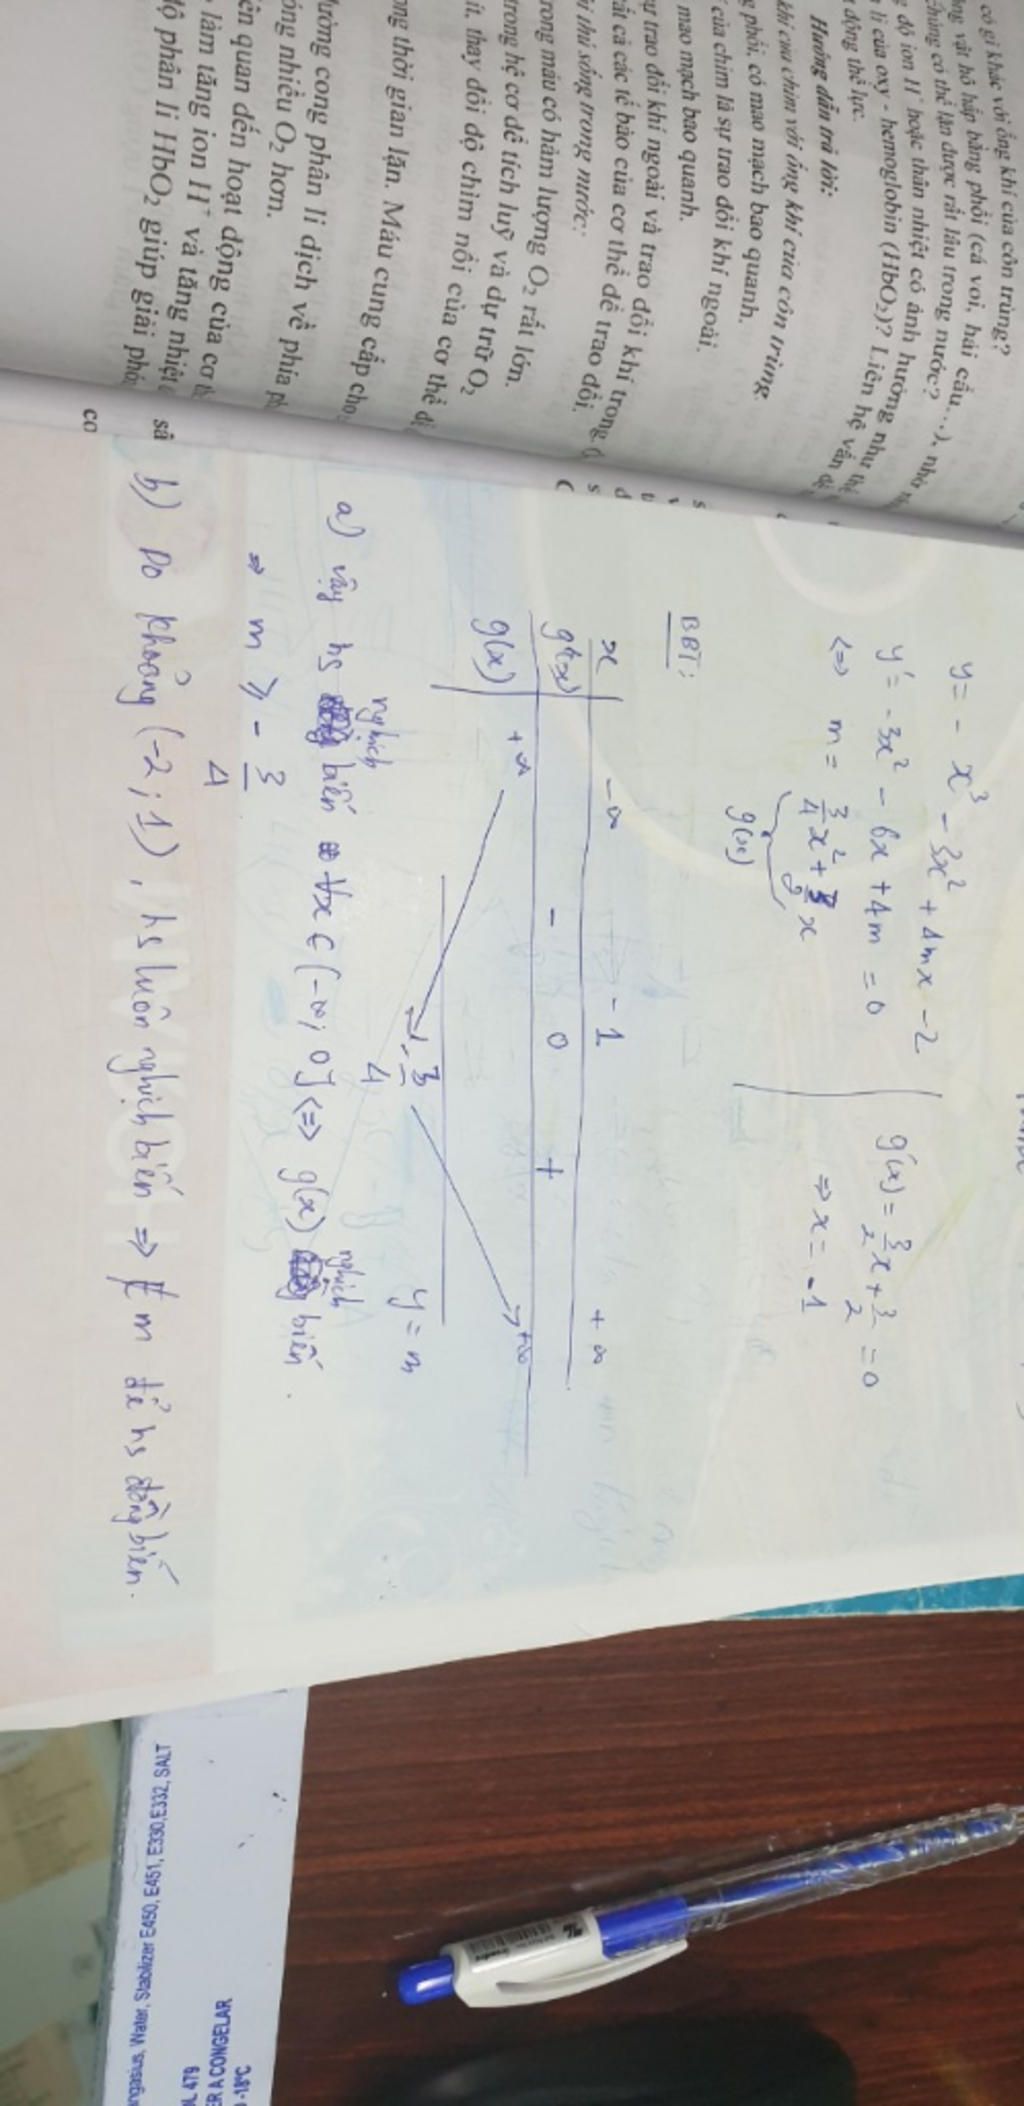 có gì khác với ống khí của côn trùng?
động vật hô hấp bằng phổi (cá voi, hải cẩu...), nhờ
chúng có thể lặn được rất lâu trong nước?
g độ ion H⁺ hoặc thân nhiệt có ảnh hưởng như thế
li của oxy - hemoglobin (HbO₂)? Liên hệ vấn đề
động thể lực.
Hướng dẫn trả lời:
khí của chim với ống khí của côn trùng.
g phổi, có mao mạch bao quanh.
của chim là sự trao đổi khí ngoài.
mao mạch bao quanh.
sự trao đổi khí ngoài và trao đổi khí trong.
tất cả các tế bào của cơ thể để trao đổi.
thú sống trong nước:
trong máu có hàm lượng O₂ rất lớn.
trong hệ cơ để tích luỹ và dự trữ O₂
ít, thay đổi độ chìm nổi của cơ thể dễ
ong thời gian lặn. Máu cung cấp cho
đường cong phân li dịch về phía ph
óng nhiều O₂ hơn.
ên quan đến hoạt động của cơ th
làm tăng ion H⁺ và tăng nhiệt
độ phân li HbO₂ giúp giải phón
sâ
co
y = - x³ - 3x² + 4mx - 2
y' = -3x² - 6x + 4m = 0
<=> m = 3/4 x² + 3/2 x
g(x)
g'(x) = 3/2 x + 3/2 = 0
=> x = -1
BBT:
x -∞ -1 +∞
g'(x) - 0 +
g(x) +∞ -3/4 +∞
y = m
a) vậy hs nghịch biến ∀x ∈ (-∞; 0] <=> g(x) nghịch biến.
=> m ≥ - 3/4
b) Do khoảng (-2; 1), hs luôn nghịch biến => ∄ m để hs đồng biến.
ngasius, Water, Stabilizer E450, E451, E330, E332, SALT
DL 479
ER A CONGELAR
-18°C